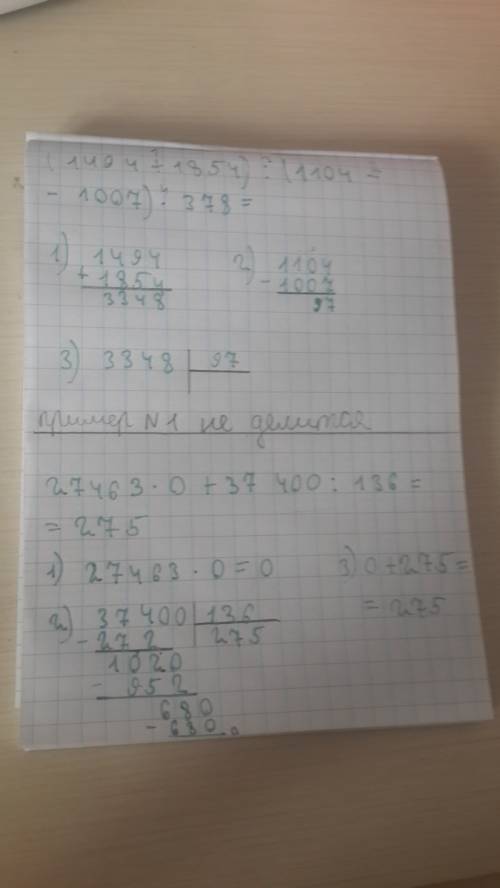 (1494+1854):(1104-
- 1007):378=
1) 1494 2) 1104
+ 1854 - 1007
3348 97
3) 3348 97
пример N1 не делится
27463·0+37 400:136=
= 275
1) 27463·0=0 3) 0+275=
= 275
2) 37400 136
- 272 275
1020
- 952
680
- 680
0